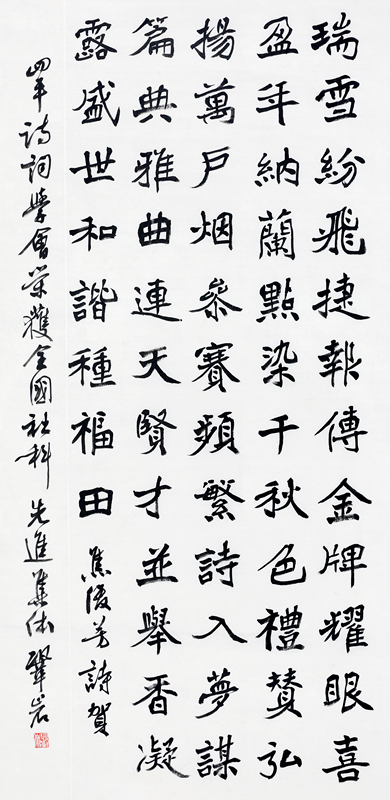 瑞雪紛飛捷報傳金牌耀眼喜
盈年納蘭點染千秋色禮贊弘
揚萬戶烟參賽頻繁詩入夢謀
篇典雅曲連天賢才並舉香凝
露盛世和諧種福田 焦浚芳詩賀
四平詩詞學會榮獲全國社科先進集体 鞏岩